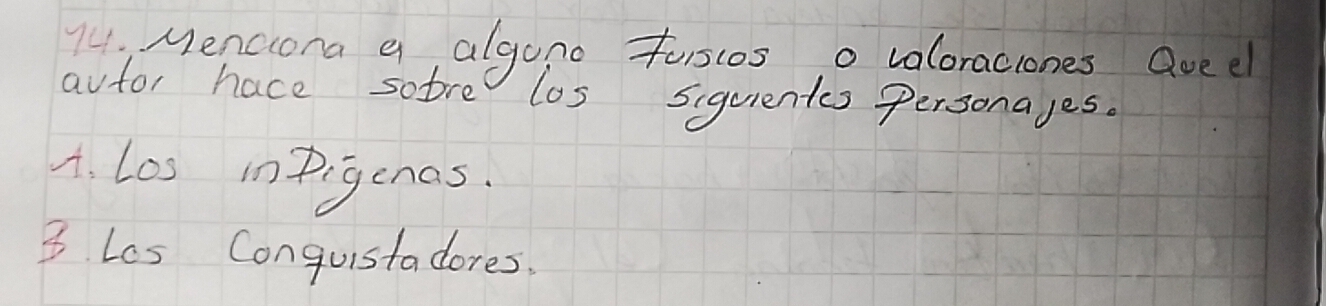 14. Menciona a alguno Juisios o valoraciones Que el
autor hace sobre los siguientes Personajes.
A. Los inDigenas.
B Los Conquistadores.